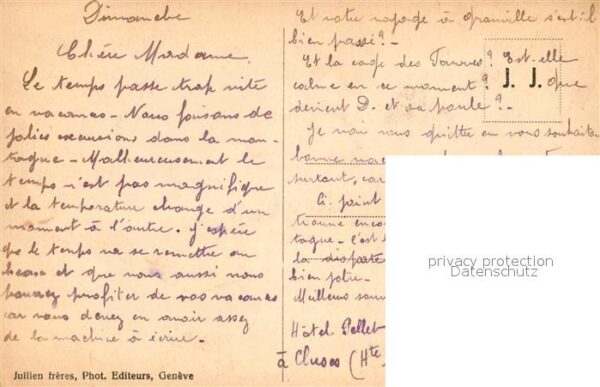 Dimanche
Chère Madame.
Le temps passe trop vite
en vacances - Nous faisons de
jolies excursions dans la mon-
tagne - Malheureusement le
temps n'est pas magnifique
et la température change d'un
moment à l'autre. J'espère
que le temps va se remettre au
beau et que vous aussi vous
pourrez profiter de vos vacances
car vous devez en avoir assez
de la machine à écrire.
Jullien frères, Phot. Editeurs, Genève
Et votre voyage à Granville s'est-il
bien passé? -
Et la cage des Est-elle
calme en ce moment? que
devient D. et sa poule? -
J. J.
Je vais vous quitter en vous souhaitant
bonne
surtout, car
A. point
tionne enco
tagne - C'est
la disparte
bien jolie -
Meilleurs souv
Hôtel Pellet
à Cluses (Hte
privacy protection
Datenschutz